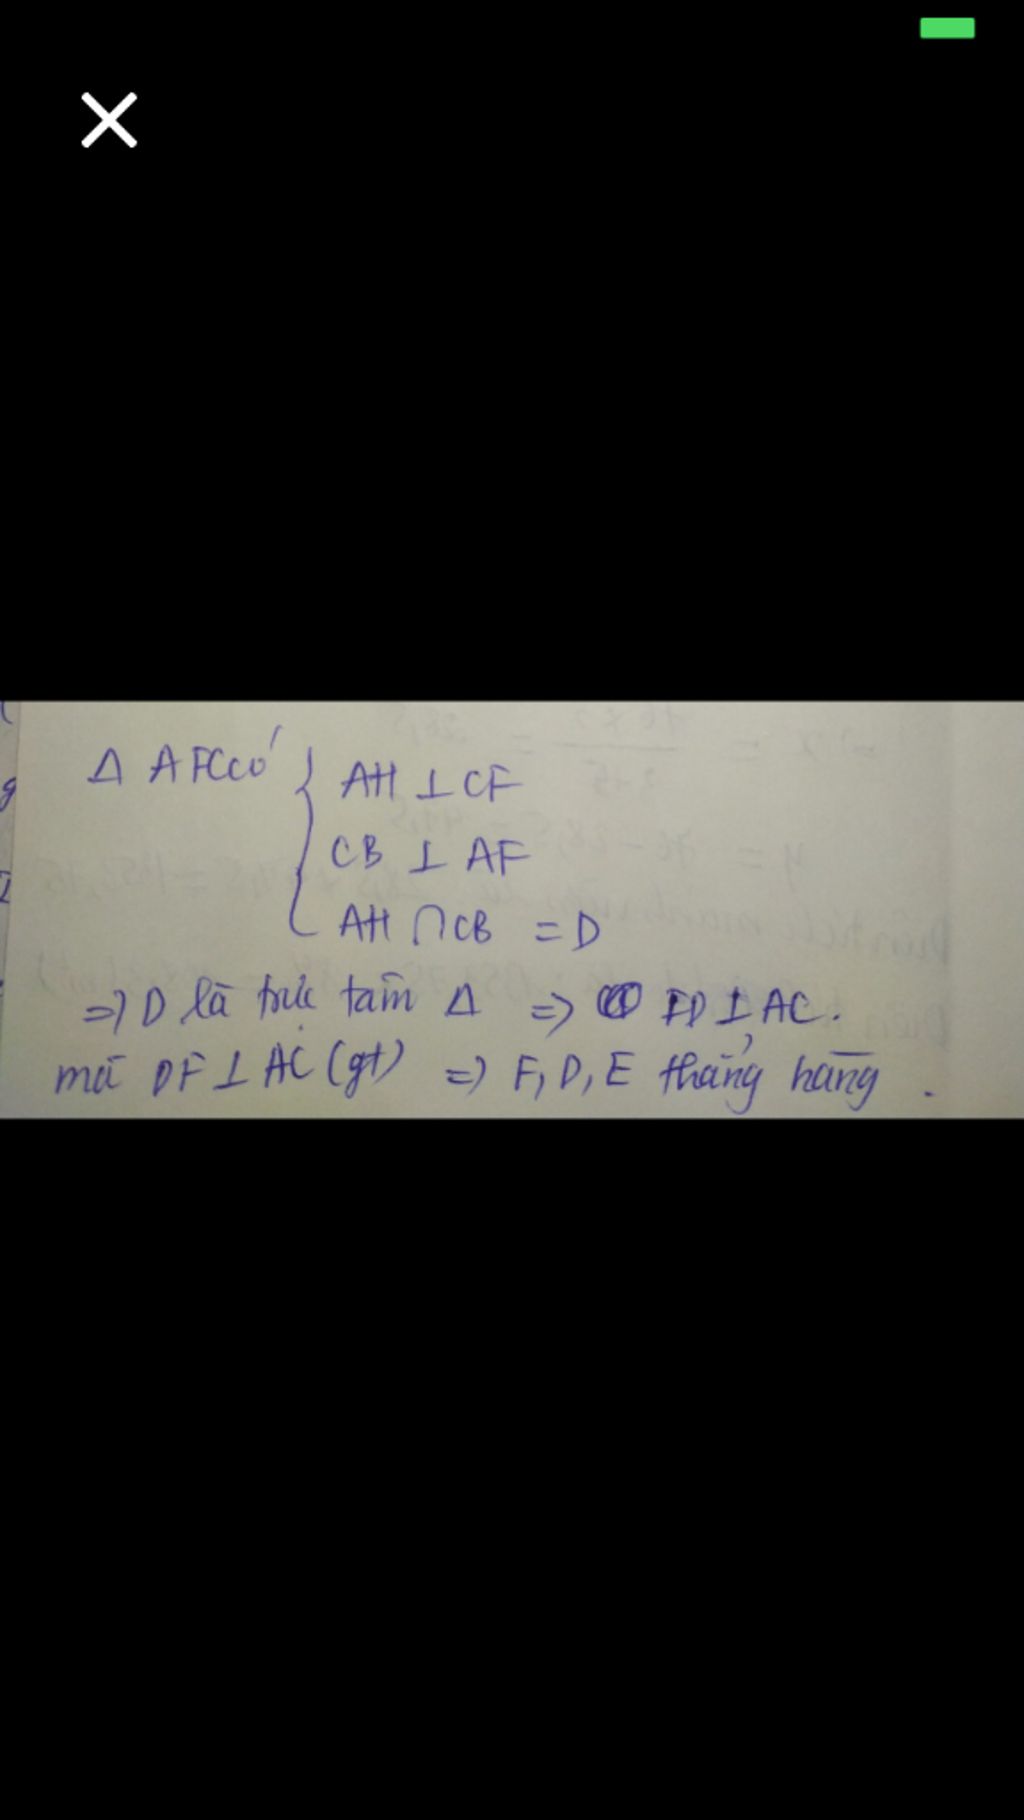 Δ AFC có { AH ⊥ CF
CB ⊥ AF
AH ∩ CB = D
=> D là trực tâm Δ => FD ⊥ AC.
mà DF ⊥ AC (gt) => F, D, E thẳng hàng .